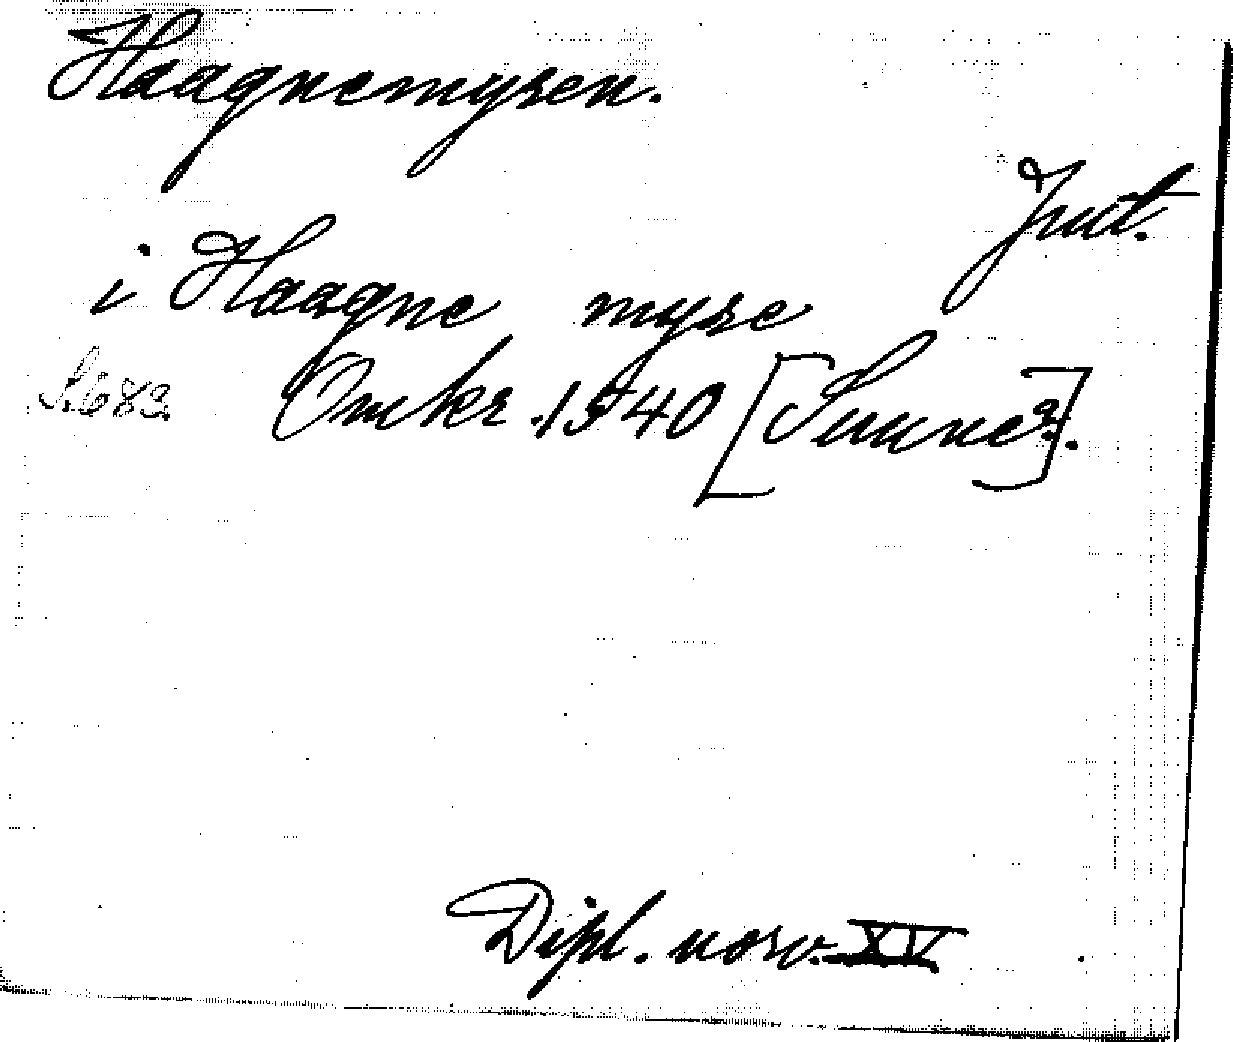 Haagnemyren.
Jmt.
i Haagne myre
S. 683. Omkr. 1540 [Sunne?].
Dipl. norv. XV